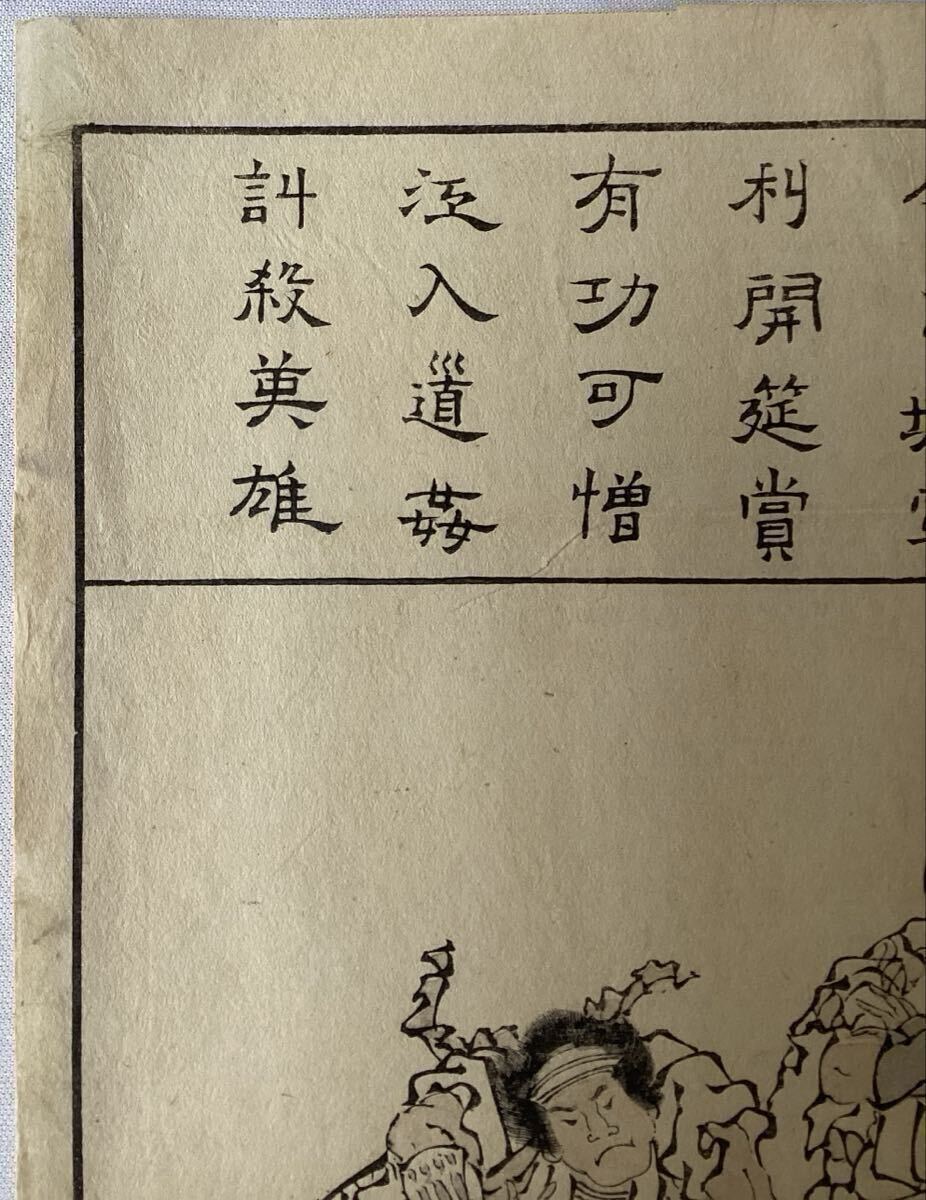 利開筵賞
有功可憎
江入道姦
計殺英雄